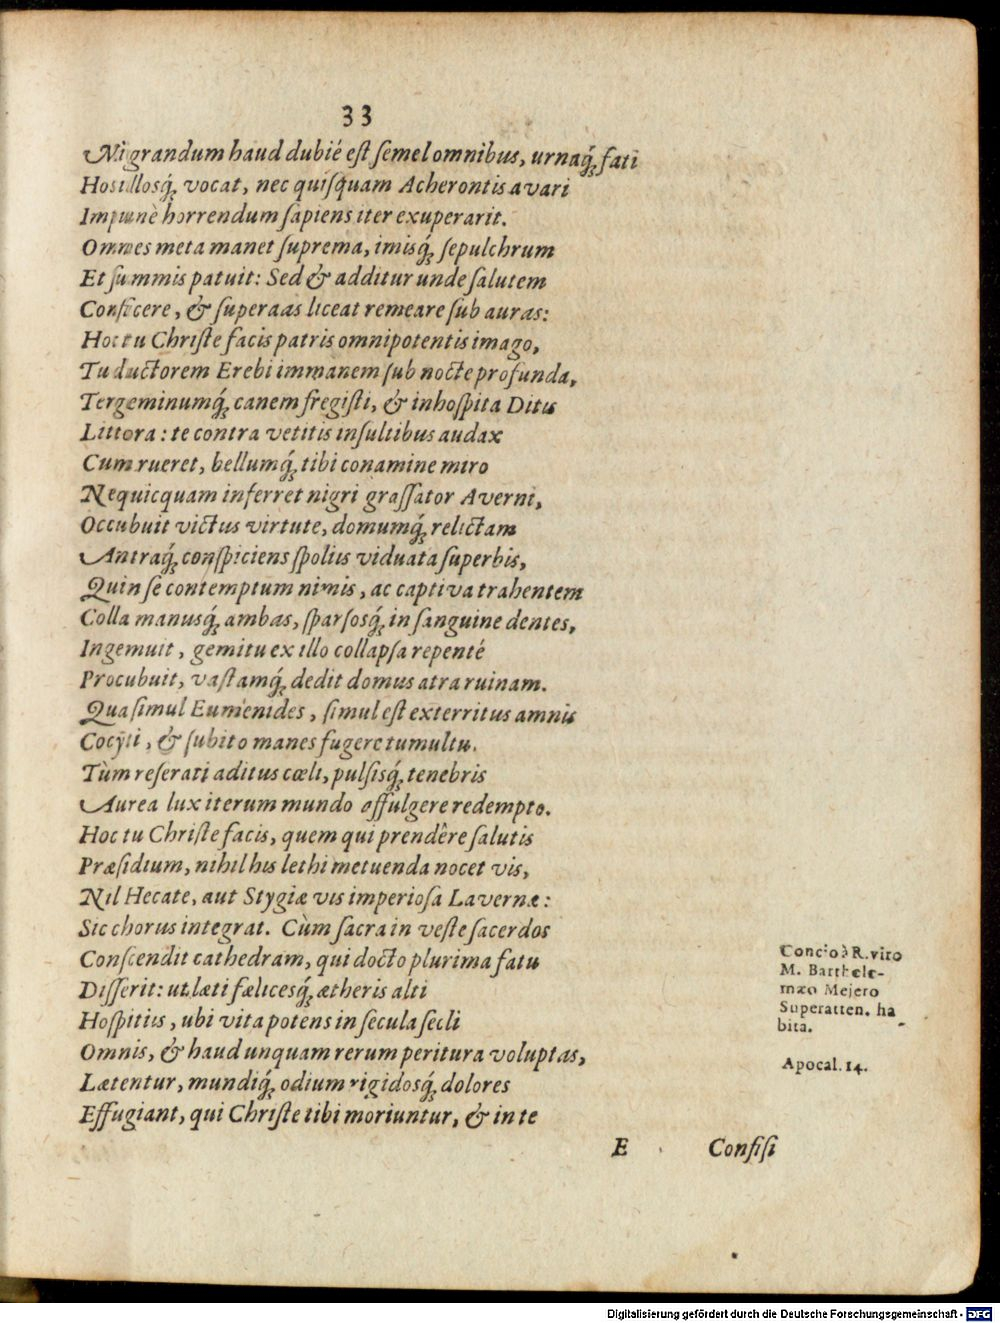 33
Nigrandum haud dubié est semel omnibus, urnaq́; fati
Hostillosq́; vocat, nec quisquam Acherontis avari
Impunè horrendum sapiens iter exuperarit.
Omnes meta manet suprema, imisq́; sepulchrum
Et summis patuit: Sed & additur unde salutem
Conficere, & superaas liceat remeare sub auras:
Hoc tu Christe facis patris omnipotentis imago,
Tu ductorem Erebi immanem sub nocte profunda,
Tergeminumq́; canem fregisti, & inhospita Ditis
Littora: te contra vetitis insultibus audax
Cum rueret, bellumq́; tibi conamine miro
Nequicquam inferret nigri grassator Averni,
Occubuit victus virtute, domumq́; relictam
Antraq́; conspiciens spoliis viduata superbis,
Quin se contemptum nimis, ac captiva trahentem
Colla manusq́; ambas, sparsosq́; in sanguine dentes,
Ingemuit, gemitu ex illo collapsa repenté
Procubuit, vastamq́; dedit domus atra ruinam.
Qua simul Eumenides, simul est exterritus amnis
Cocÿti, & subito manes fugere tumultu.
Tùm reserati aditus cœli, pulsisq́; tenebris
Aurea lux iterum mundo effulgere redempto.
Hoc tu Christe facis, quem qui prendêre salutis
Præsidium, nihil his lethi metuenda nocet vis,
Nil Hecate, aut Stygiæ vis imperiosa Lavernæ:
Sic chorus integrat. Cùm sacra in veste sacerdos
Conscendit cathedram, qui docto plurima fatu
Disserit: ut læti fælicesq́; ætheris alti
Hospitiis, ubi vita potens in secula secli
Omnis, & haud unquam rerum peritura voluptas,
Lætentur, mundiq́; odium rigidosq́; dolores
Effugiant, qui Christe tibi moriuntur, & in te
E Confisi
Concio à R. viro
M. Barthele-
mæo Mejero
Superatten. ha
bita.
Apocal. 14.
Digitalisierung gefördert durch die Deutsche Forschungsgemeinschaft - DFG